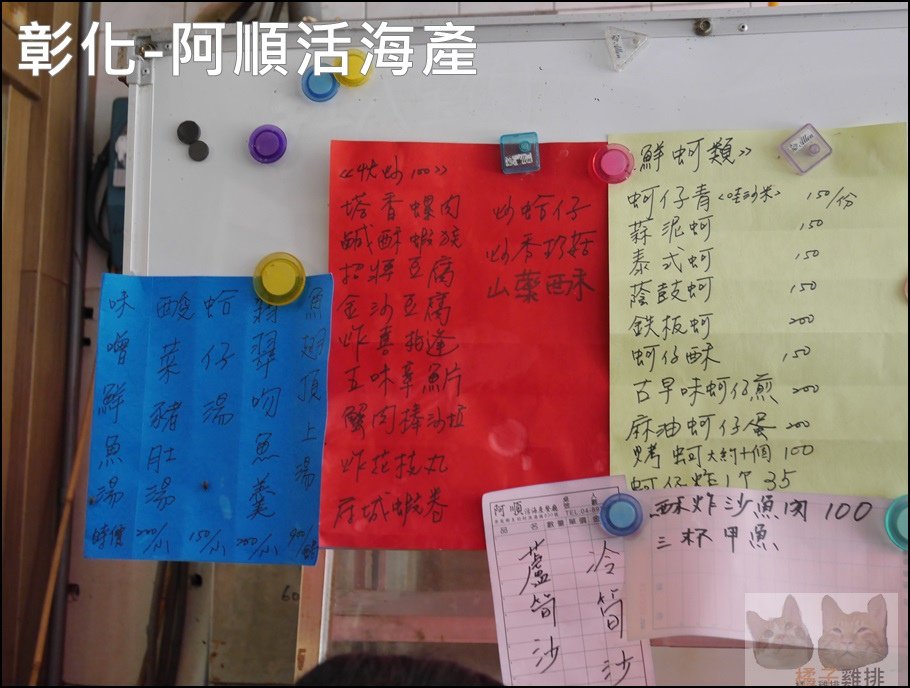 彰化-阿順活海產
味噌鮮魚湯 時價
酸菜豬肚湯 200/小
蛤仔湯 150/小
翡翠吻魚羹 200/小
魚翅頂上湯 900/
《快炒100》
塔香螺肉
鹹酥蝦猴
招牌豆腐
金沙豆腐
炸喜相逢
五味章魚片
蟹肉棒沙拉
炸花枝丸
府城蝦卷
炒蛤仔
炒香珍菇
山藥酥
鮮蚵類》
蚵仔青<哇沙米> 150/份
蒜泥蚵 150
泰式蚵 150
蔭鼓蚵 150
鉄板蚵 200
蚵仔酥 150
古早味蚵仔煎 200
麻油蚵仔蛋 200
烤蚵大約十個 100
蚵仔炸1个 35
酥炸沙魚肉 100
三杯甲魚
阿順活海產餐廳
品名 數量 單價 金
蘆筍沙
冷筍沙
橘子雞排